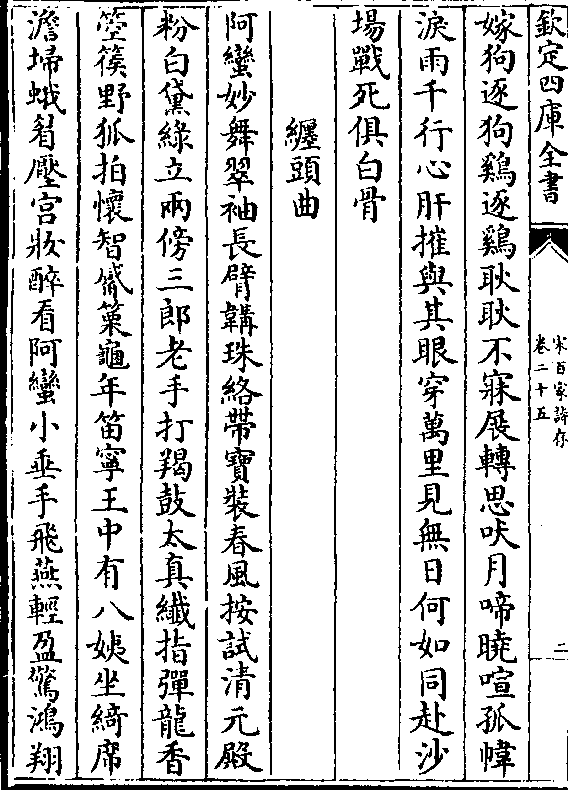 欽定四庫全書
宋百家詩存
卷二十五
二
嫁狗逐狗鷄逐鷄耿耿不寐展轉思吠月啼曉喧孤幃
淚雨千行心肝摧與其眼穿萬里見無日何如同赴沙
場戰死俱白骨
纏頭曲
阿蠻妙舞翠袖長臂韝珠絡帶寶裝春風按試清元殿
粉白黛綠立兩傍三郎老手打羯鼓太真纖指彈龍香
箜篌野狐拍懷智觱篥龜年笛寧王中有八姨坐綺席
澹埽蛾眉壓宮妝醉看阿蠻小垂手飛燕輕盈驚鴻翔